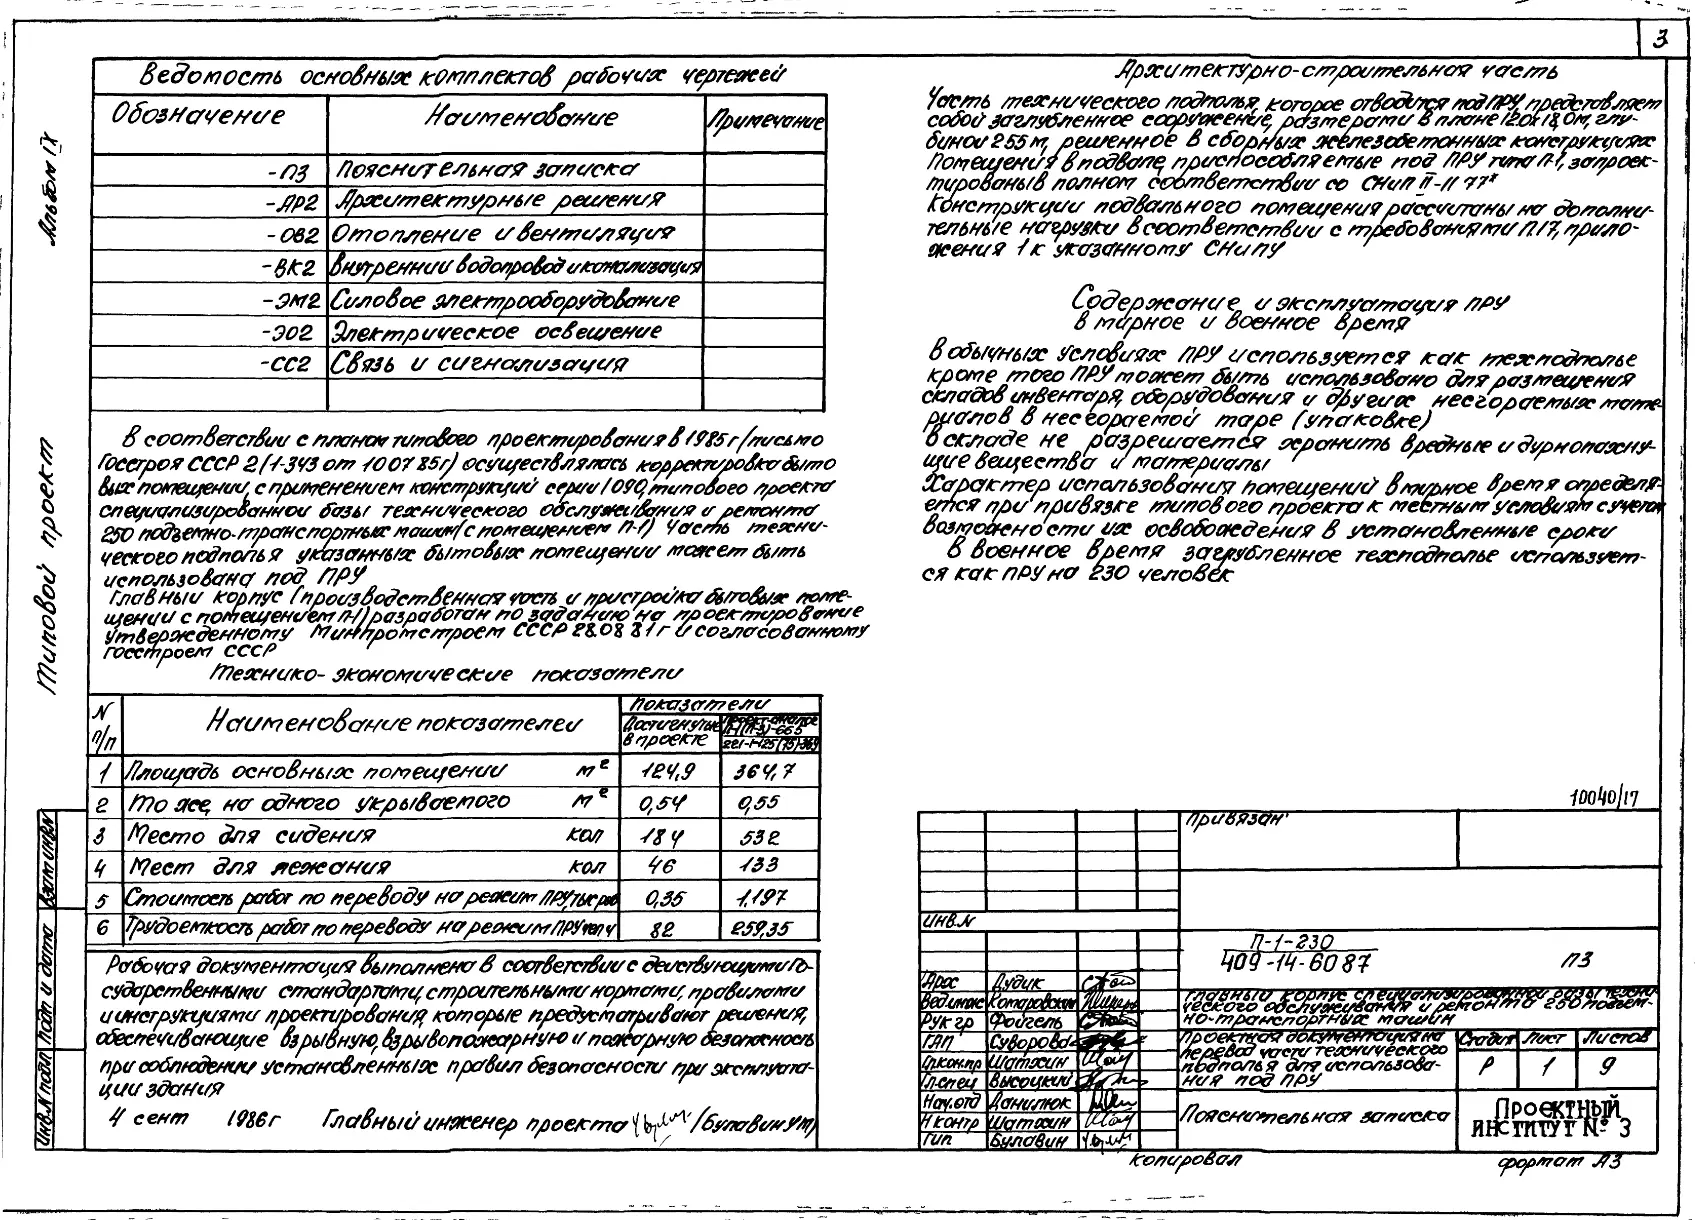 3
Альбом IX
Типовой проект
Ведомость основных комплектов рабочих чертежей
Обозначение Наименование Примечание
-ПЗ Пояснительная записка
-АР2 Архитектурные решения
-ОВ2 Отопление и вентиляция
-ВК2 Внутренний водопровод и канализация
-ЭМ2 Силовое электрооборудование
-ЭО2 Электрическое освещение
-СС2 Связь и сигнализация
В соответствии с планом типового проектирования в 1985г /письмо
Госстроя СССР 2/1-343 от 10 07 85г) осуществлялась корректировка быто
вых помещений, с применением конструкций серии 1 090, типового проекта
специализированной базы технического обслуживания и ремонта
250 подъемно-транспортных машин (с помещением П-1) Часть техни-
ческого подполья указанных бытовых помещений может быть
использована под ПРУ
Главный корпус (производственная часть и пристройка бытовых поме-
щений с помещением П-1) разработан по заданию на проектирование
утвержденному Минпромстроем СССР 28.08 81г и согласованному
госстроем СССР
Технико-экономические показатели
N п/п Наименование показателей Показатели
Достигнутые в проекте
1 Площадь основных помещений м² 124,9 364,7
2 То же, на одного укрываемого м² 0,54 0,55
3 Место для сидения кол 184 532
4 Мест для лежания кол 46 133
5 Стоимость работ по переводу на режим ПРУ, тыс руб 0,35 1.197
6 Трудоемкость работ по переводу на режим ПРУ чел ч 82 259,35
Рабочая документация выполнена в соответствии с действующими Го-
сударственными стандартами, строительными нормами, правилами
и инструкциями проектирования, которые предусматривают решения,
обеспечивающие взрывную, взрывопожарную и пожарную безопасность
при соблюдении установленных правил безопасности при эксплуата-
ции здания
4 сент 1986г Главный инженер проекта /Булавин УМ/
Архитектурно-строительная часть
Часть технического подполья, которое отводится под ПРУ, представляет
собой заглубленное сооружение, размерами в плане 12.0х18 0м, глу-
биной 2 55 м, решенное в сборных железобетонных конструкциях
Помещения в подвале, приспособляемые под ПРУ типа П-1, запроек-
тированы в полном соответствии со СНиП II-11 77*
Конструкции подвального помещения рассчитаны на дополни-
тельные нагрузки в соответствии с требованиями П.17, прило-
жения 1 к указанному СНиПу
Содержание и эксплуатация ПРУ
в мирное и военное время
В обычных условиях ПРУ используется как техподполье
кроме того ПРУ может быть использовано для размещения
складов инвентаря, оборудования и других несгораемых мате-
риалов в несгораемой таре (упаковке)
В складе не разрешается хранить вредные и дурнопахну-
щие вещества и материалы
Характер использования помещений в мирное время определя-
ется при привязке типового проекта к местным условиям с учетом
возможности их освобождения в установленные сроки
В военное время заглубленное техподполье использует-
ся как ПРУ на 230 человек
10040/17
Привязан
Инв.N
П-1-230
409-14-60 87 ПЗ
Главный корпус специализированной базы техни-
ческого обслуживания и ремонта 250 подъем-
но-транспортных машин
Арх Дудик
Вед.инж Комаровская
Рук гр Фойгель
ГАП Суворова
Гл.кон.пр Шатохин
Гл.спец Высоцкий
Нач.отд Данилюк
Н контр Шатохин
Гип Булавин
Проектная документация на
перевод части технического
подполья для использова-
ния под ПРУ
Стадия Лист Листов
Р 1 9
Пояснительная записка
Проектный
институт № 3
Копировал формат А3
Взам инв.N
Подп и дата
Инв.N подл